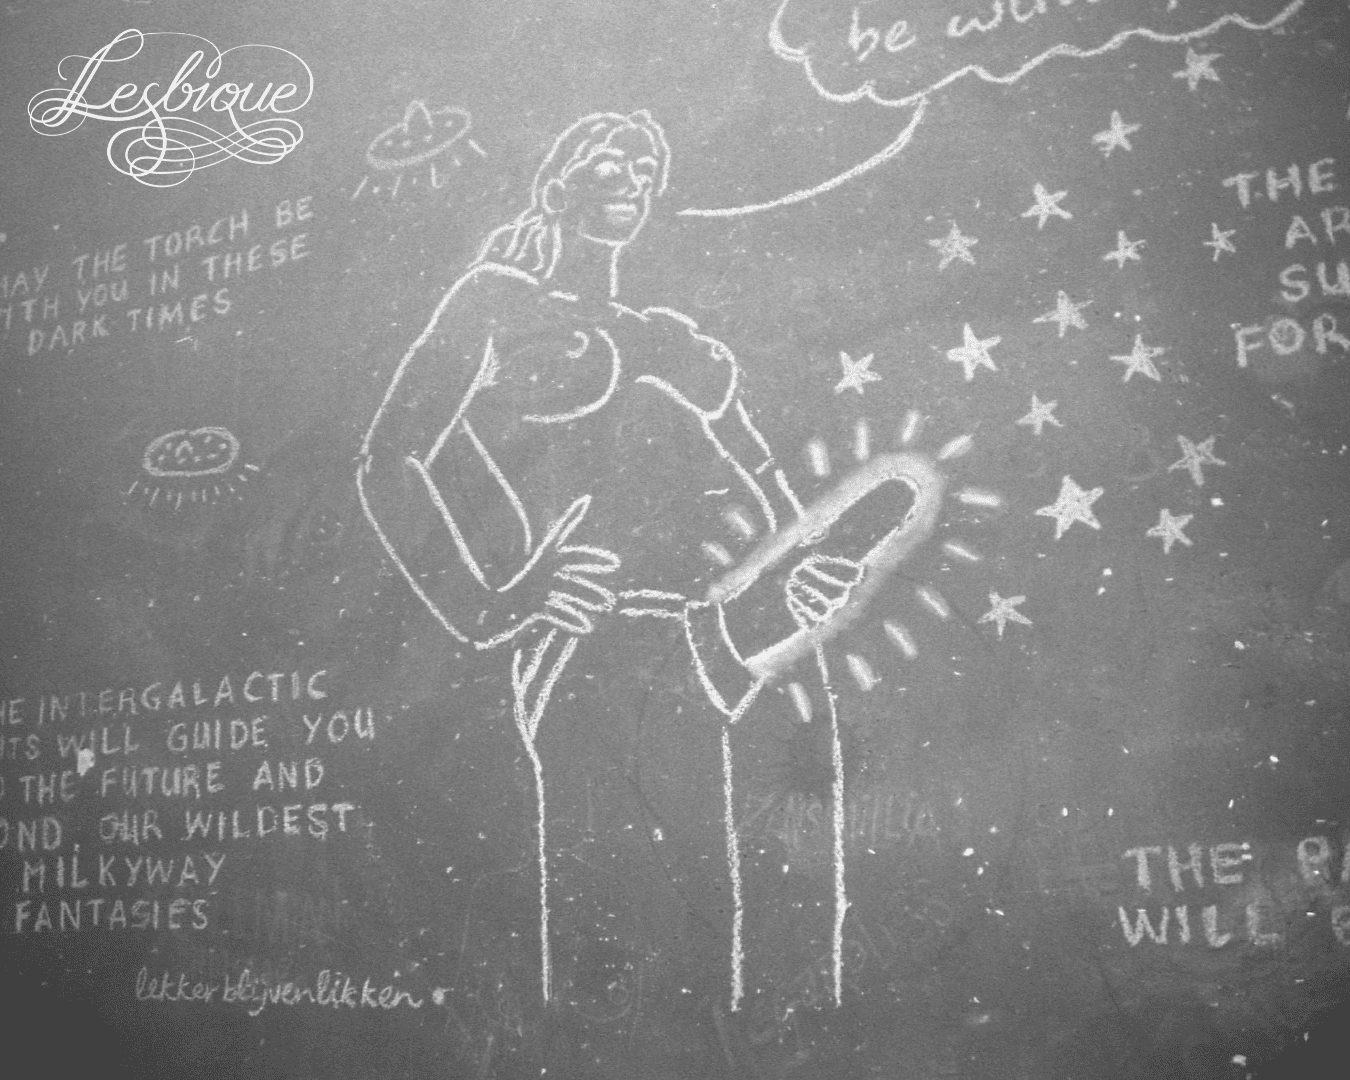 Lesbique
be
MAY THE TORCH BE
WITH YOU IN THESE
DARK TIMES
THE
AR
SU
FOR
HE INTERGALACTIC
HTS WILL GUIDE YOU
O THE FUTURE AND
OND OUR WILDEST
MILKYWAY
FANTASIES
THE
WILL
lekker blijven likken